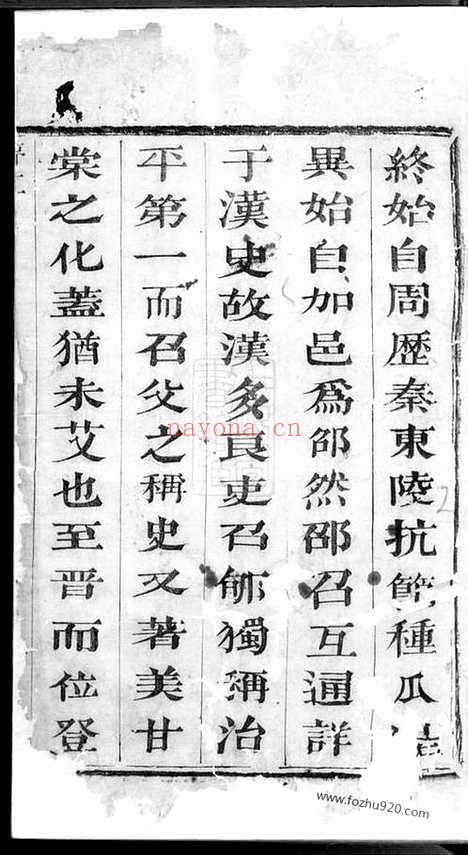 終始自周歷秦東陵抗節種瓜
異始自加邑爲邵然邵召互通詳
于漢史故漢多良吏召師獨稱治
平第一而召父之稱史又著美甘
棠之化蓋猶未艾也至晋而位登
nayona.cn
www.fozhu920.com